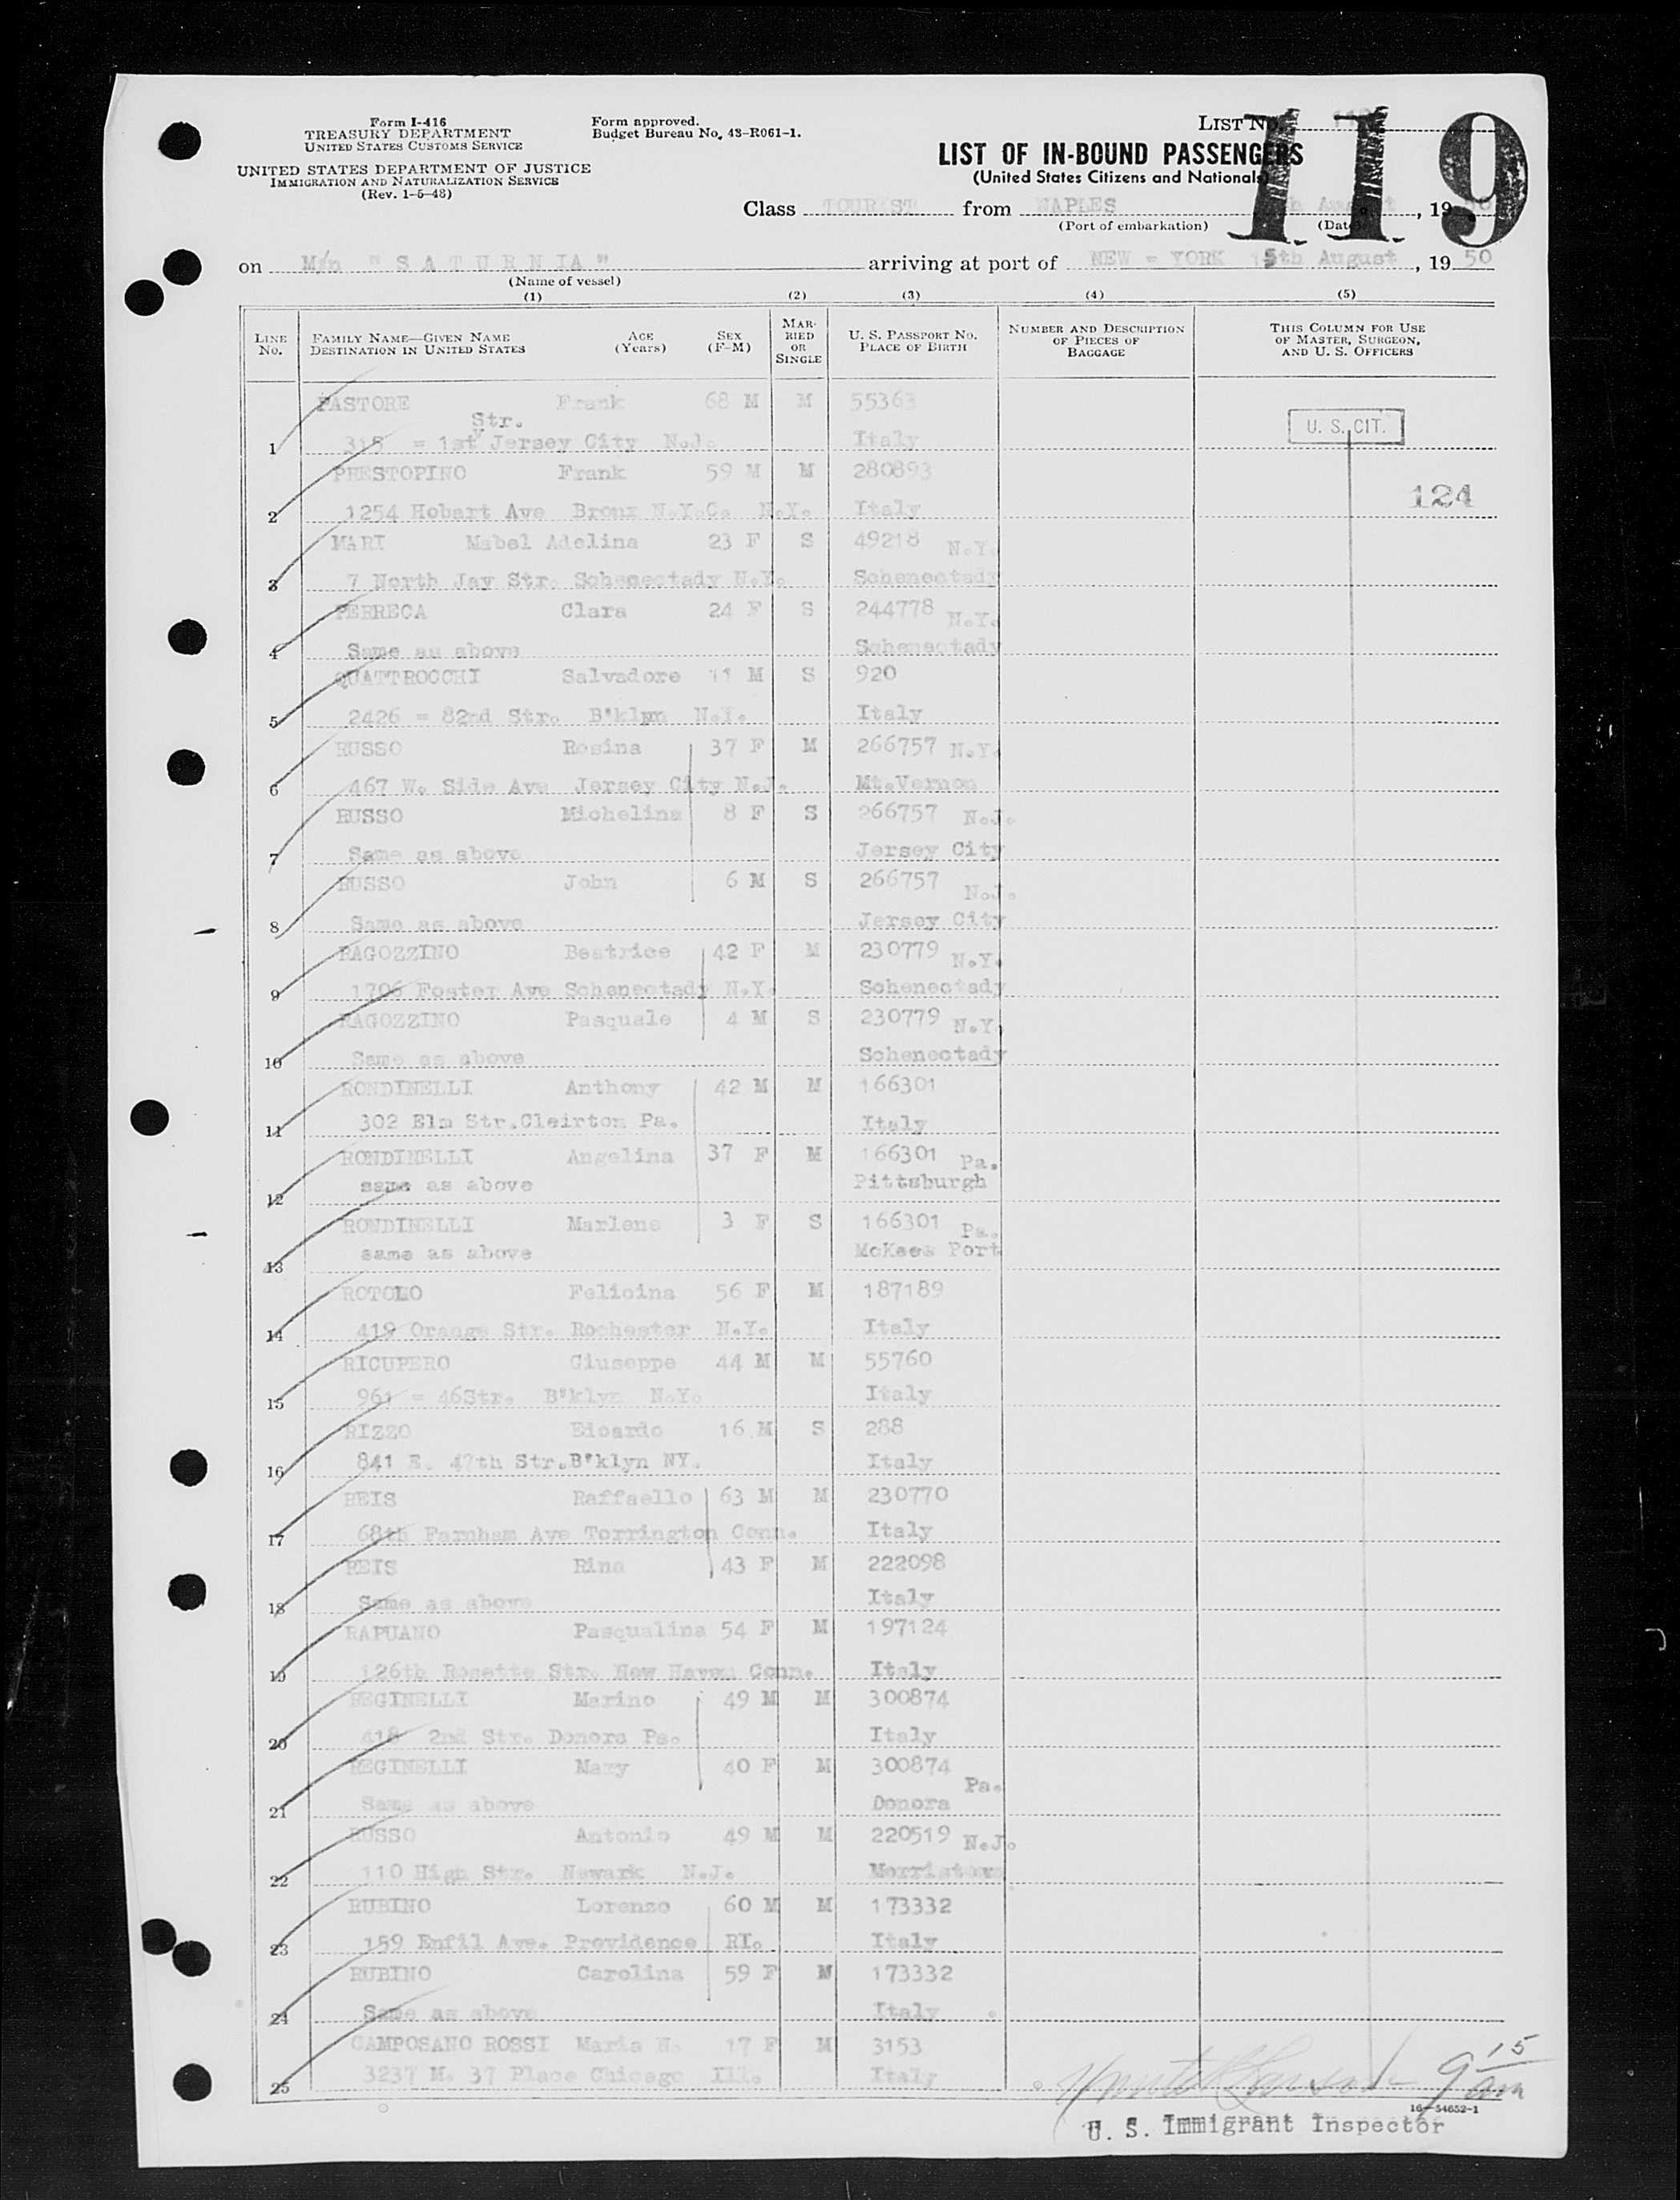 Form I-416
TREASURY DEPARTMENT
UNITED STATES CUSTOMS SERVICE
UNITED STATES DEPARTMENT OF JUSTICE
IMMIGRATION AND NATURALIZATION SERVICE
(Rev. 1-5-48)
Form approved.
Budget Bureau No. 43-R061-1.
LIST No.
119
LIST OF IN-BOUND PASSENGERS
(United States Citizens and Nationals)
Class TOURIST from NAPLES August, 19
(Port of embarkation) (Date)
on M/n "SATURNIA" arriving at port of NEW = YORK 15th August, 19 50
(Name of vessel)
(1) (2) (3) (4) (5)
LINE No. FAMILY NAME—GIVEN NAME DESTINATION IN UNITED STATES AGE (Years) SEX (F-M) MARRIED OR SINGLE U. S. PASSPORT NO. PLACE OF BIRTH NUMBER AND DESCRIPTION OF PIECES OF BAGGAGE THIS COLUMN FOR USE OF MASTER, SURGEON, AND U. S. OFFICERS
PASTORE Frank 68 M M 55363
Str.
1 318 = 1st Jersey City N.J. Italy
U. S. CIT.
PRESTOPINO Frank 59 M M 280893
124
2 1254 Hobart Ave Bronx N.Y.C. N.Y. Italy
MARI Mabel Adelina 23 F S 49218 N.Y.
3 7 North Jay Str. Schenectady N.Y. Schenectady
PERRECA Clara 24 F S 244778 N.Y.
4 Same as above Schenectady
QUATTROCCHI Salvadore 11 M S 920
5 2426 = 82nd Str. B'klyn N.Y. Italy
RUSSO Rosina 37 F M 266757 N.Y.
6 467 W. Side Ave Jersey City N.J. Mt.Vernon
RUSSO Michelina 8 F S 266757 N.J.
7 Same as above Jersey City
RUSSO John 6 M S 266757 N.J.
8 Same as above Jersey City
RAGOZZINO Beatrice 42 F M 230779 N.Y.
9 1706 Foster Ave Schenectady N.Y. Schenectady
RAGOZZINO Pasquale 4 M S 230779 N.Y.
10 Same as above Schenectady
RONDINELLI Anthony 42 M M 166301
11 302 Elm Str.Cleirton Pa. Italy
RONDINELLI Angelina 37 F M 166301 Pa.
12 same as above Pittsburgh
RONDINELLI Marlene 3 F S 166301 Pa.
13 same as above McKees Port
ROTOLO Felicina 56 F M 187189
14 419 Orange Str. Rochester N.Y. Italy
RICUPERO Giuseppe 44 M M 55760
15 961 = 46Str. B'klyn N.Y. Italy
RIZZO Edoardo 16 M S 288
16 841 E. 47th Str.B'klyn NY. Italy
REIS Raffaello 63 M M 230770
17 68th Farnham Ave Torrington Conn. Italy
REIS Rina 43 F M 222098
18 Same as above Italy
RAPUANO Pasqualina 54 F M 197124
19 126th Rosette Str. New Haven Conn. Italy
REGINELLI Marino 49 M M 300874
20 418 2nd Str. Donora Pa. Italy
REGINELLI Mary 40 F M 300874 Pa.
21 Same as above Donora
RUSSO Antonio 49 M M 220519 N.J.
22 110 High Str. Newark N.J. Morristown
RUBINO Lorenzo 60 M M 173332
23 159 Enfil Ave. Providence RI. Italy
RUBINO Carolina 59 F M 173332
24 Same as above Italy
CAMPOSANO ROSSI Maria N. 17 F M 3153
25 3237 M. 37 Place Chicago Ill. Italy
9 15 am
16—54652-1
U. S. Immigrant Inspector